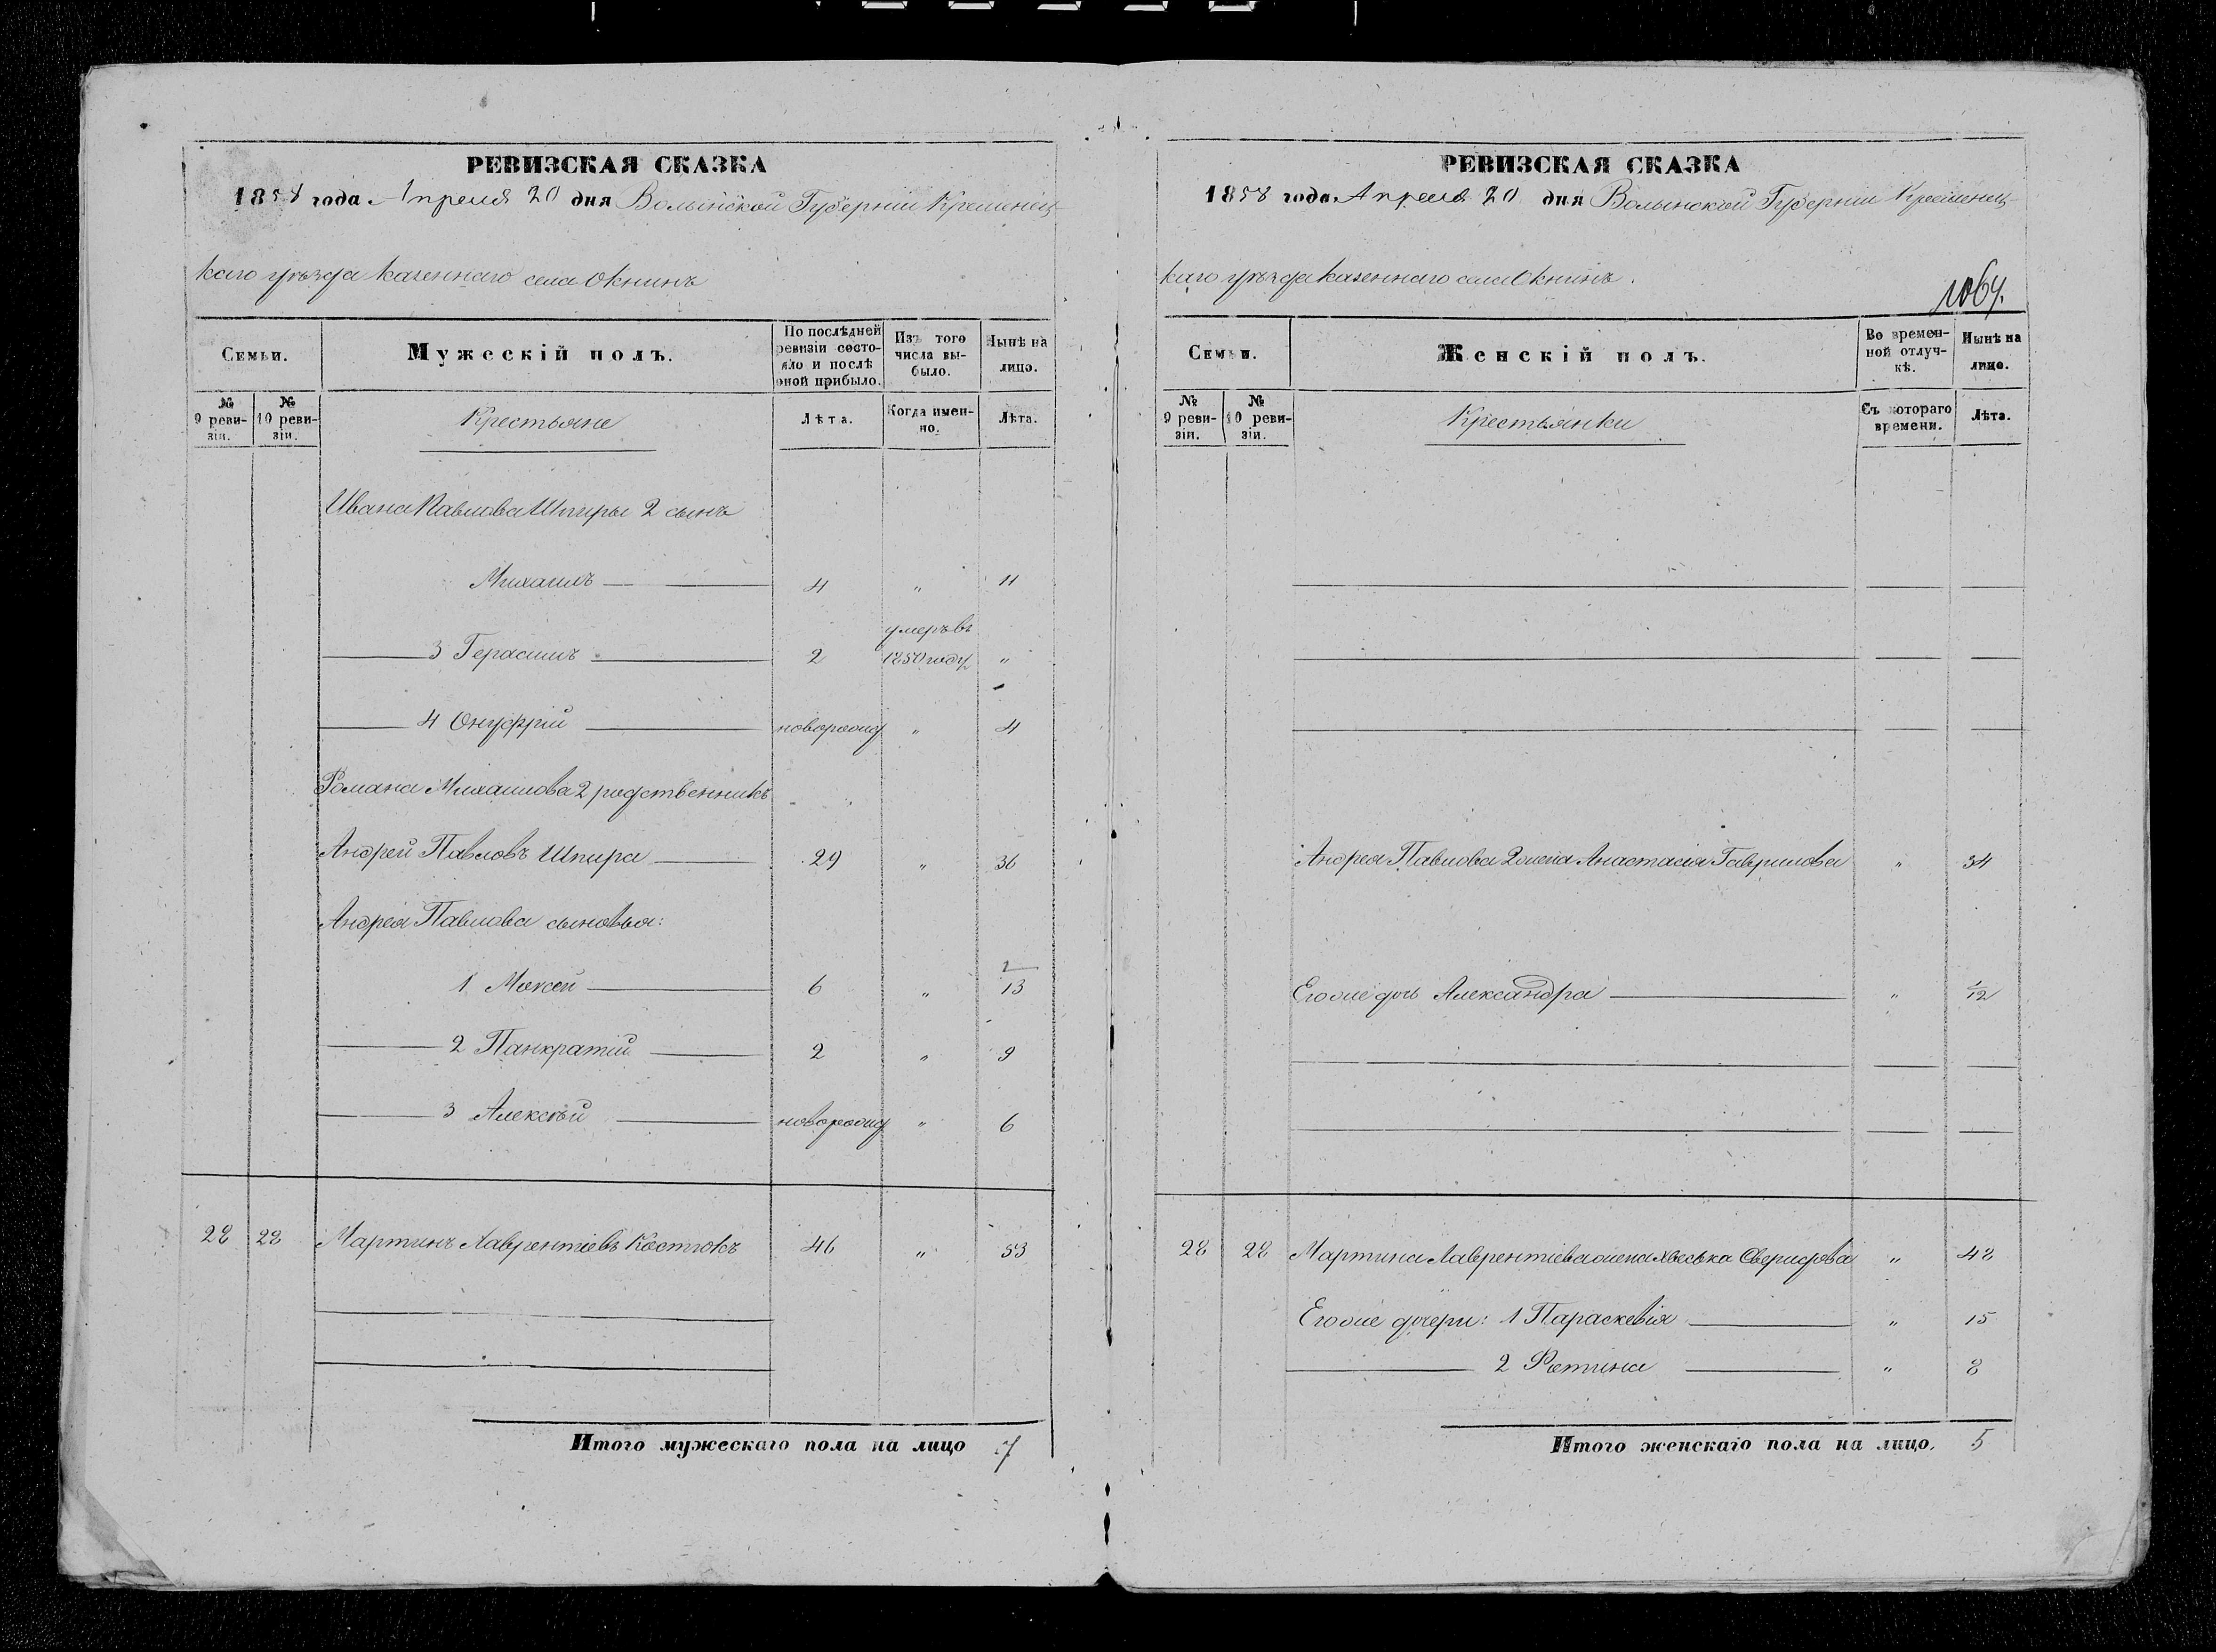 РЕВИЗСКАЯ СКАЗКА
1858 года Апреля 20 дня Волынской Губерніи Кременец-
каго уѣзда казеннаго села Окнинъ
Семьи.
Мужескій полъ.
По послѣдней ревизіи состояло и послѣ оной прибыло.
Изъ того числа выбыло.
Нынѣ на лицо.
№ 9 ревизіи.
№ 10 ревизіи.
Крестьяне
Лѣта.
Когда именно.
Лѣта.
Ивана Павлова Шпиры 2 сынъ
Михаилъ 4 " 11
3 Герасимъ 2 умеръ въ 1850 году "
4 Онуфрій новорожд " 4
Романа Михаилова 2 родственникъ
Андрей Павловъ Шпира 29 " 36
Андрея Павлова сыновья:
1 Моксей 6 " 13
2 Панкратій 2 " 9
3 Алексѣй новорожд " 6
28 28 Мартинъ Лаврентіевъ Костюкъ 46 " 53
Итого мужескаго пола на лицо 7
РЕВИЗСКАЯ СКАЗКА
1858 года Апреля 20 дня Волынской Губерніи Кременец-
каго уѣзда казеннаго села Окнинъ.
1064.
Семьи.
Женскій полъ.
Во временной отлучкѣ.
Нынѣ на лицо.
№ 9 ревизіи.
№ 10 ревизіи.
Крестьянки
Съ котораго времени.
Лѣта.
Андрея Павлова 2 жена Анастасія Гаврилова " 34
Егоже дочь Александра " 1/12
28 28 Мартина Лаврентіева жена Хвеська Свиридова " 48
Егоже дочери: 1 Параскевія " 15
2 Фотина " 8
Итого женскаго пола на лицо. 5